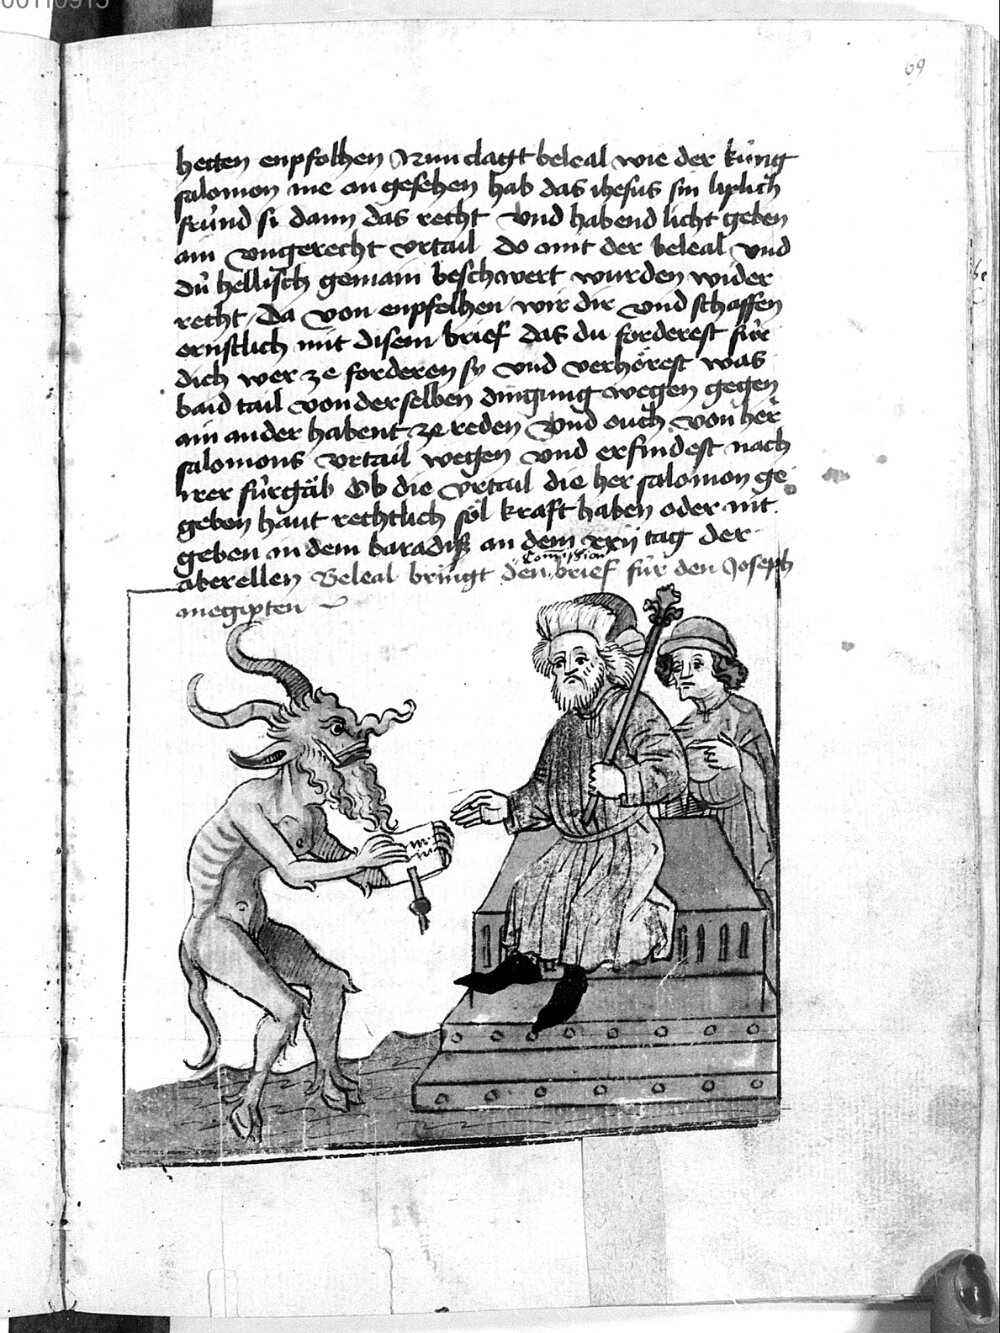 00110913
69
hetten enpfolhen Nun clagt beleal wie der küng
salomon nie an gesehen hab das ihesus sin liplich
fründ si dann das recht Vnd habend licht geben
ain vngerecht vrtail do mit der beleal vnd
dü hellisch gemain beschwert wurden wider
recht Da von enpfelhen wir dir vnd schaffen
ernstlich mit disem brief das du forderest für
dich wer ze forderen sy vnd verhörest was
baid tail von der selben dingung wegen gegen
ain ander habent ze reden Vnd ouch von her
salomons vrtail wegen vnd erfindest nach
irer fürgäb Ob die vrtail die her salomon ge
geben haut rechtlich söl kraft haben oder nit
geben in dem baradiß an dem xxij tag der
Com̄ission
aberellen Beleal bringt den brief für den Joseph
in egipten